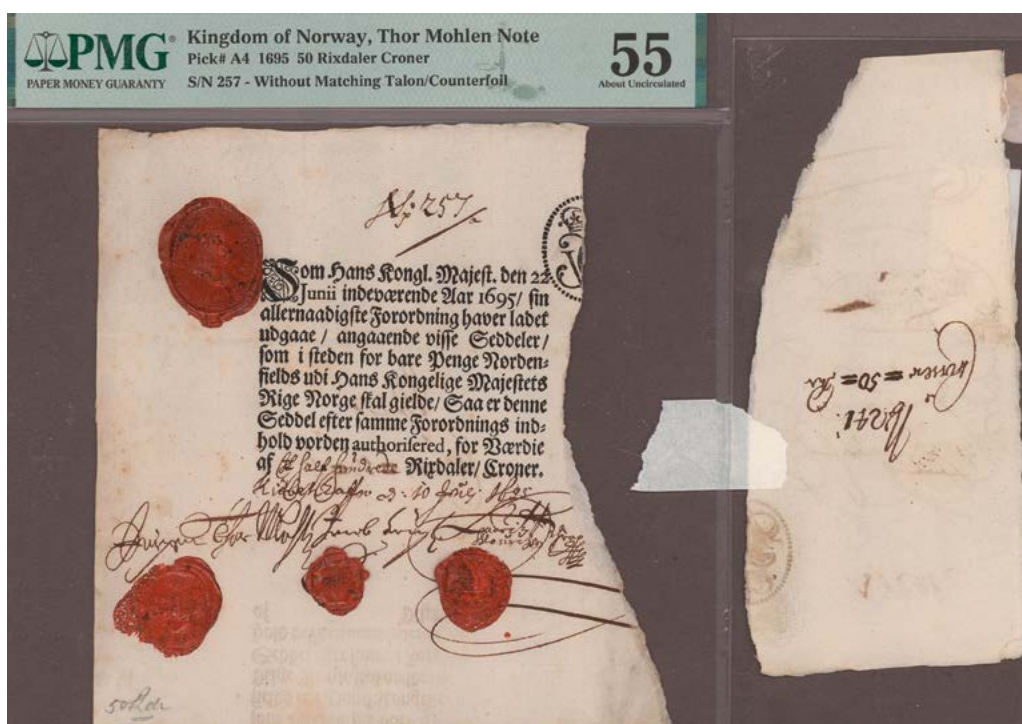 PMG
PAPER MONEY GUARANTY
Kingdom of Norway, Thor Mohlen Note
Pick# A4 1695 50 Rixdaler Croner
S/N 257 - Without Matching Talon/Counterfoil
55
About Uncirculated
257
Som Hans Kongl. Majest. den 22
Junii indeværende Aar 1695/ sin
allernaadigste Forordning haver ladet
udgaae / angaaende visse Seddeler/
som i steden for bare Penge Norden-
fields udi Hans Kongelige Majestets
Rige Norge skal gielde/ Saa er denne
Seddel efter samme Forordnings ind-
hold vorden authorisered, for Værdie
af Et half hundrede Rixdaler/ Croner.
10 Julij 1695
Thor Mohl
50 Rdr
241
Croner = 50 =